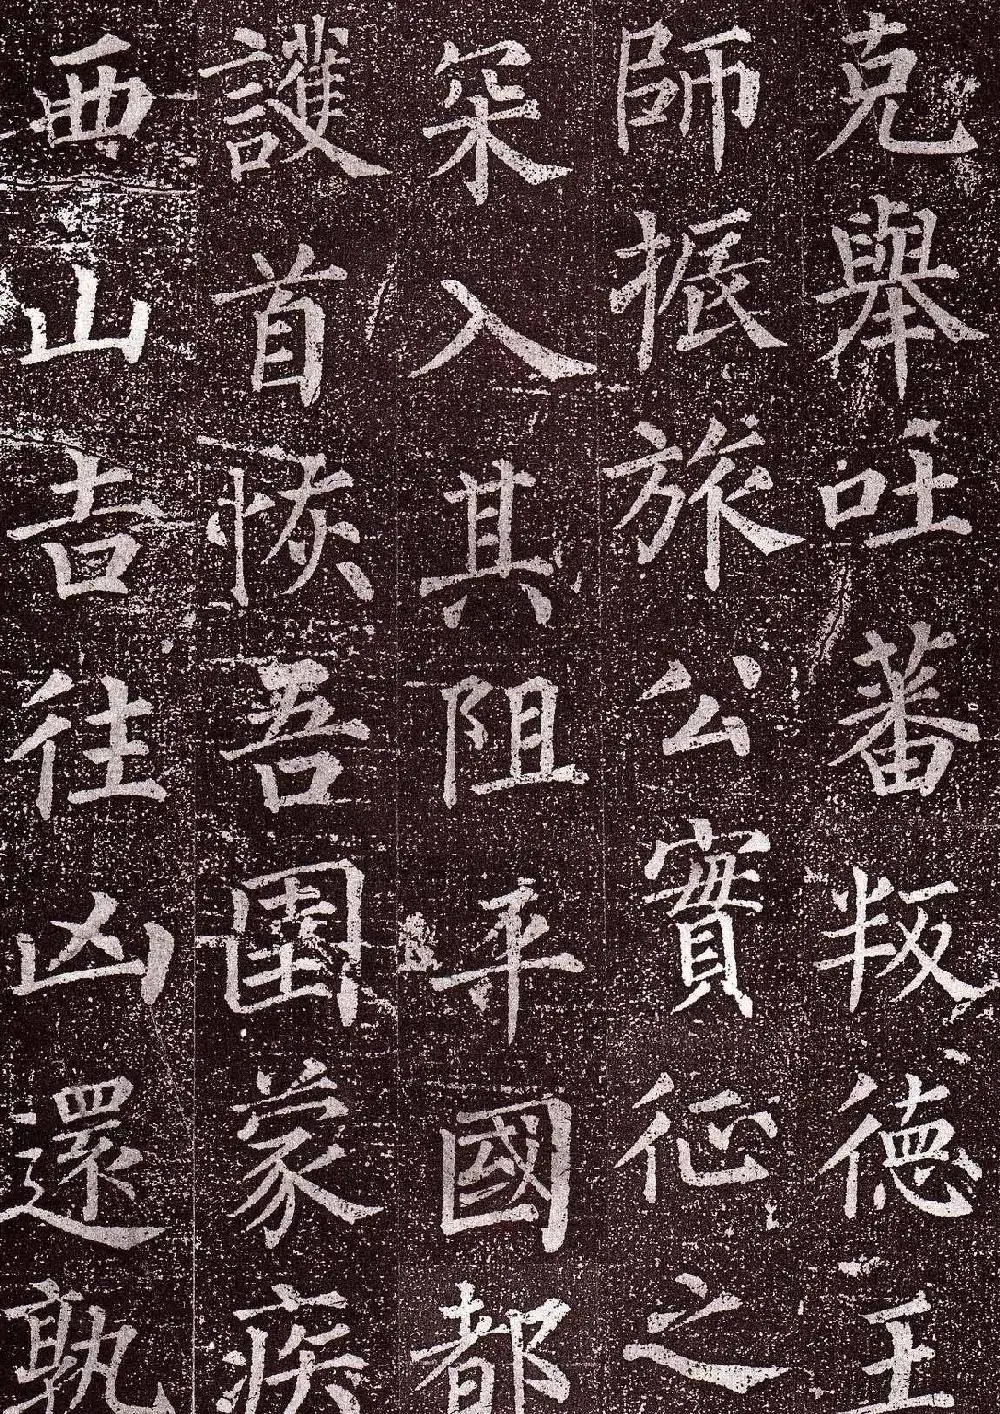 克舉吐蕃叛德王
師振旅公實仳之
罙入其阻平國都
護首恢吾圉家疾
西山吉往凶還孰